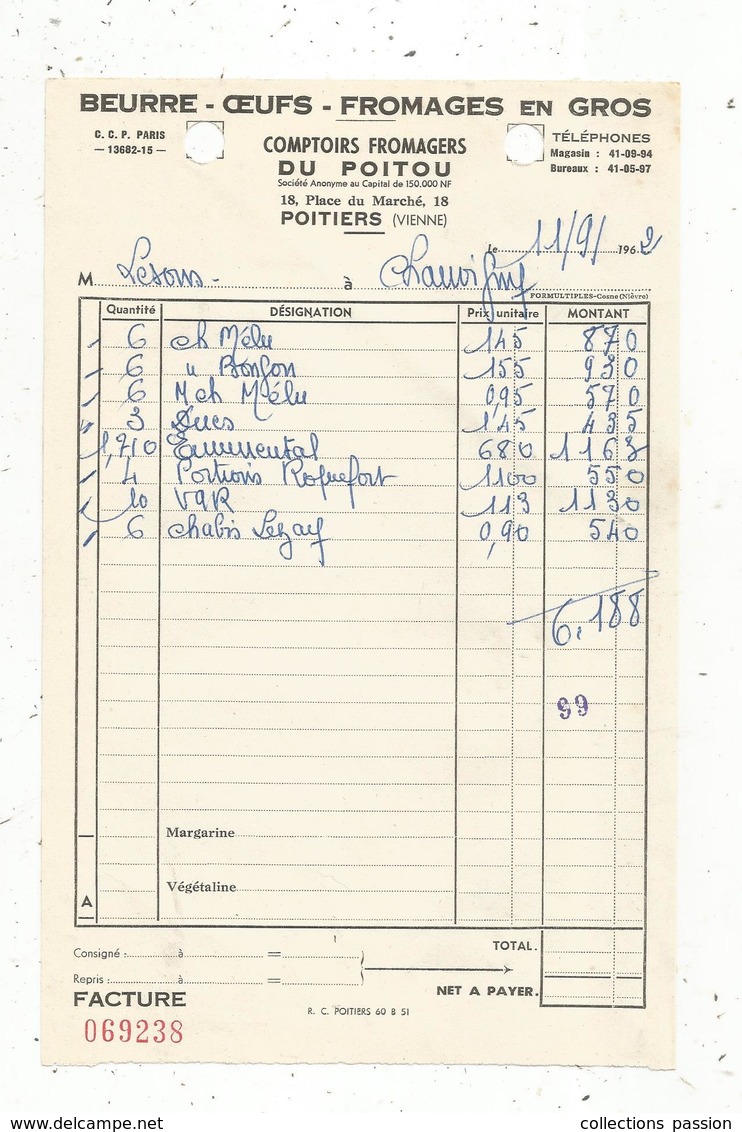 BEURRE - ŒUFS - FROMAGES EN GROS
C. C. P. PARIS
— 13682-15 —
COMPTOIRS FROMAGERS
DU POITOU
Société Anonyme au Capital de 150.000 NF
18, Place du Marché, 18
POITIERS (VIENNE)
TÉLÉPHONES
Magasin : 41-09-94
Bureaux : 41-05-97
le 11/9/ 1962
M. Lesous - à Chauvigny
FORMULTIPLES-Cosne (Nièvre)
Quantité DÉSIGNATION Prix unitaire MONTANT
6 ch Mélu 145 870
6 " Bonson 155 930
6 M ch Mélu 0,95 570
3 Ducs 145 435
1,710 Emmental 680 1163
4 Portions Roquefort 1100 550
10 VQR 113 1130
6 chabis Lezay 0,90 540
6.188
99
Margarine
Végétaline
A
Consigné : à =
TOTAL.
Repris : à =
NET A PAYER.
FACTURE
R. C. POITIERS 60 B 51
069238
collections passion